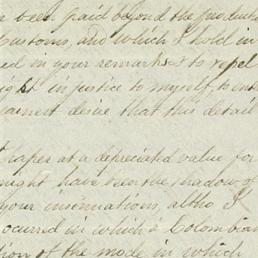 been paid beyond the product
Customs, and which I hold in
ed in your remarks to repel
in justice to myself, to
earnest desire that this detail
paper at a depreciated value for
might have seen the shadow of
your insinuations, altho I
occurred in which a Colombian
tion of the mode in which